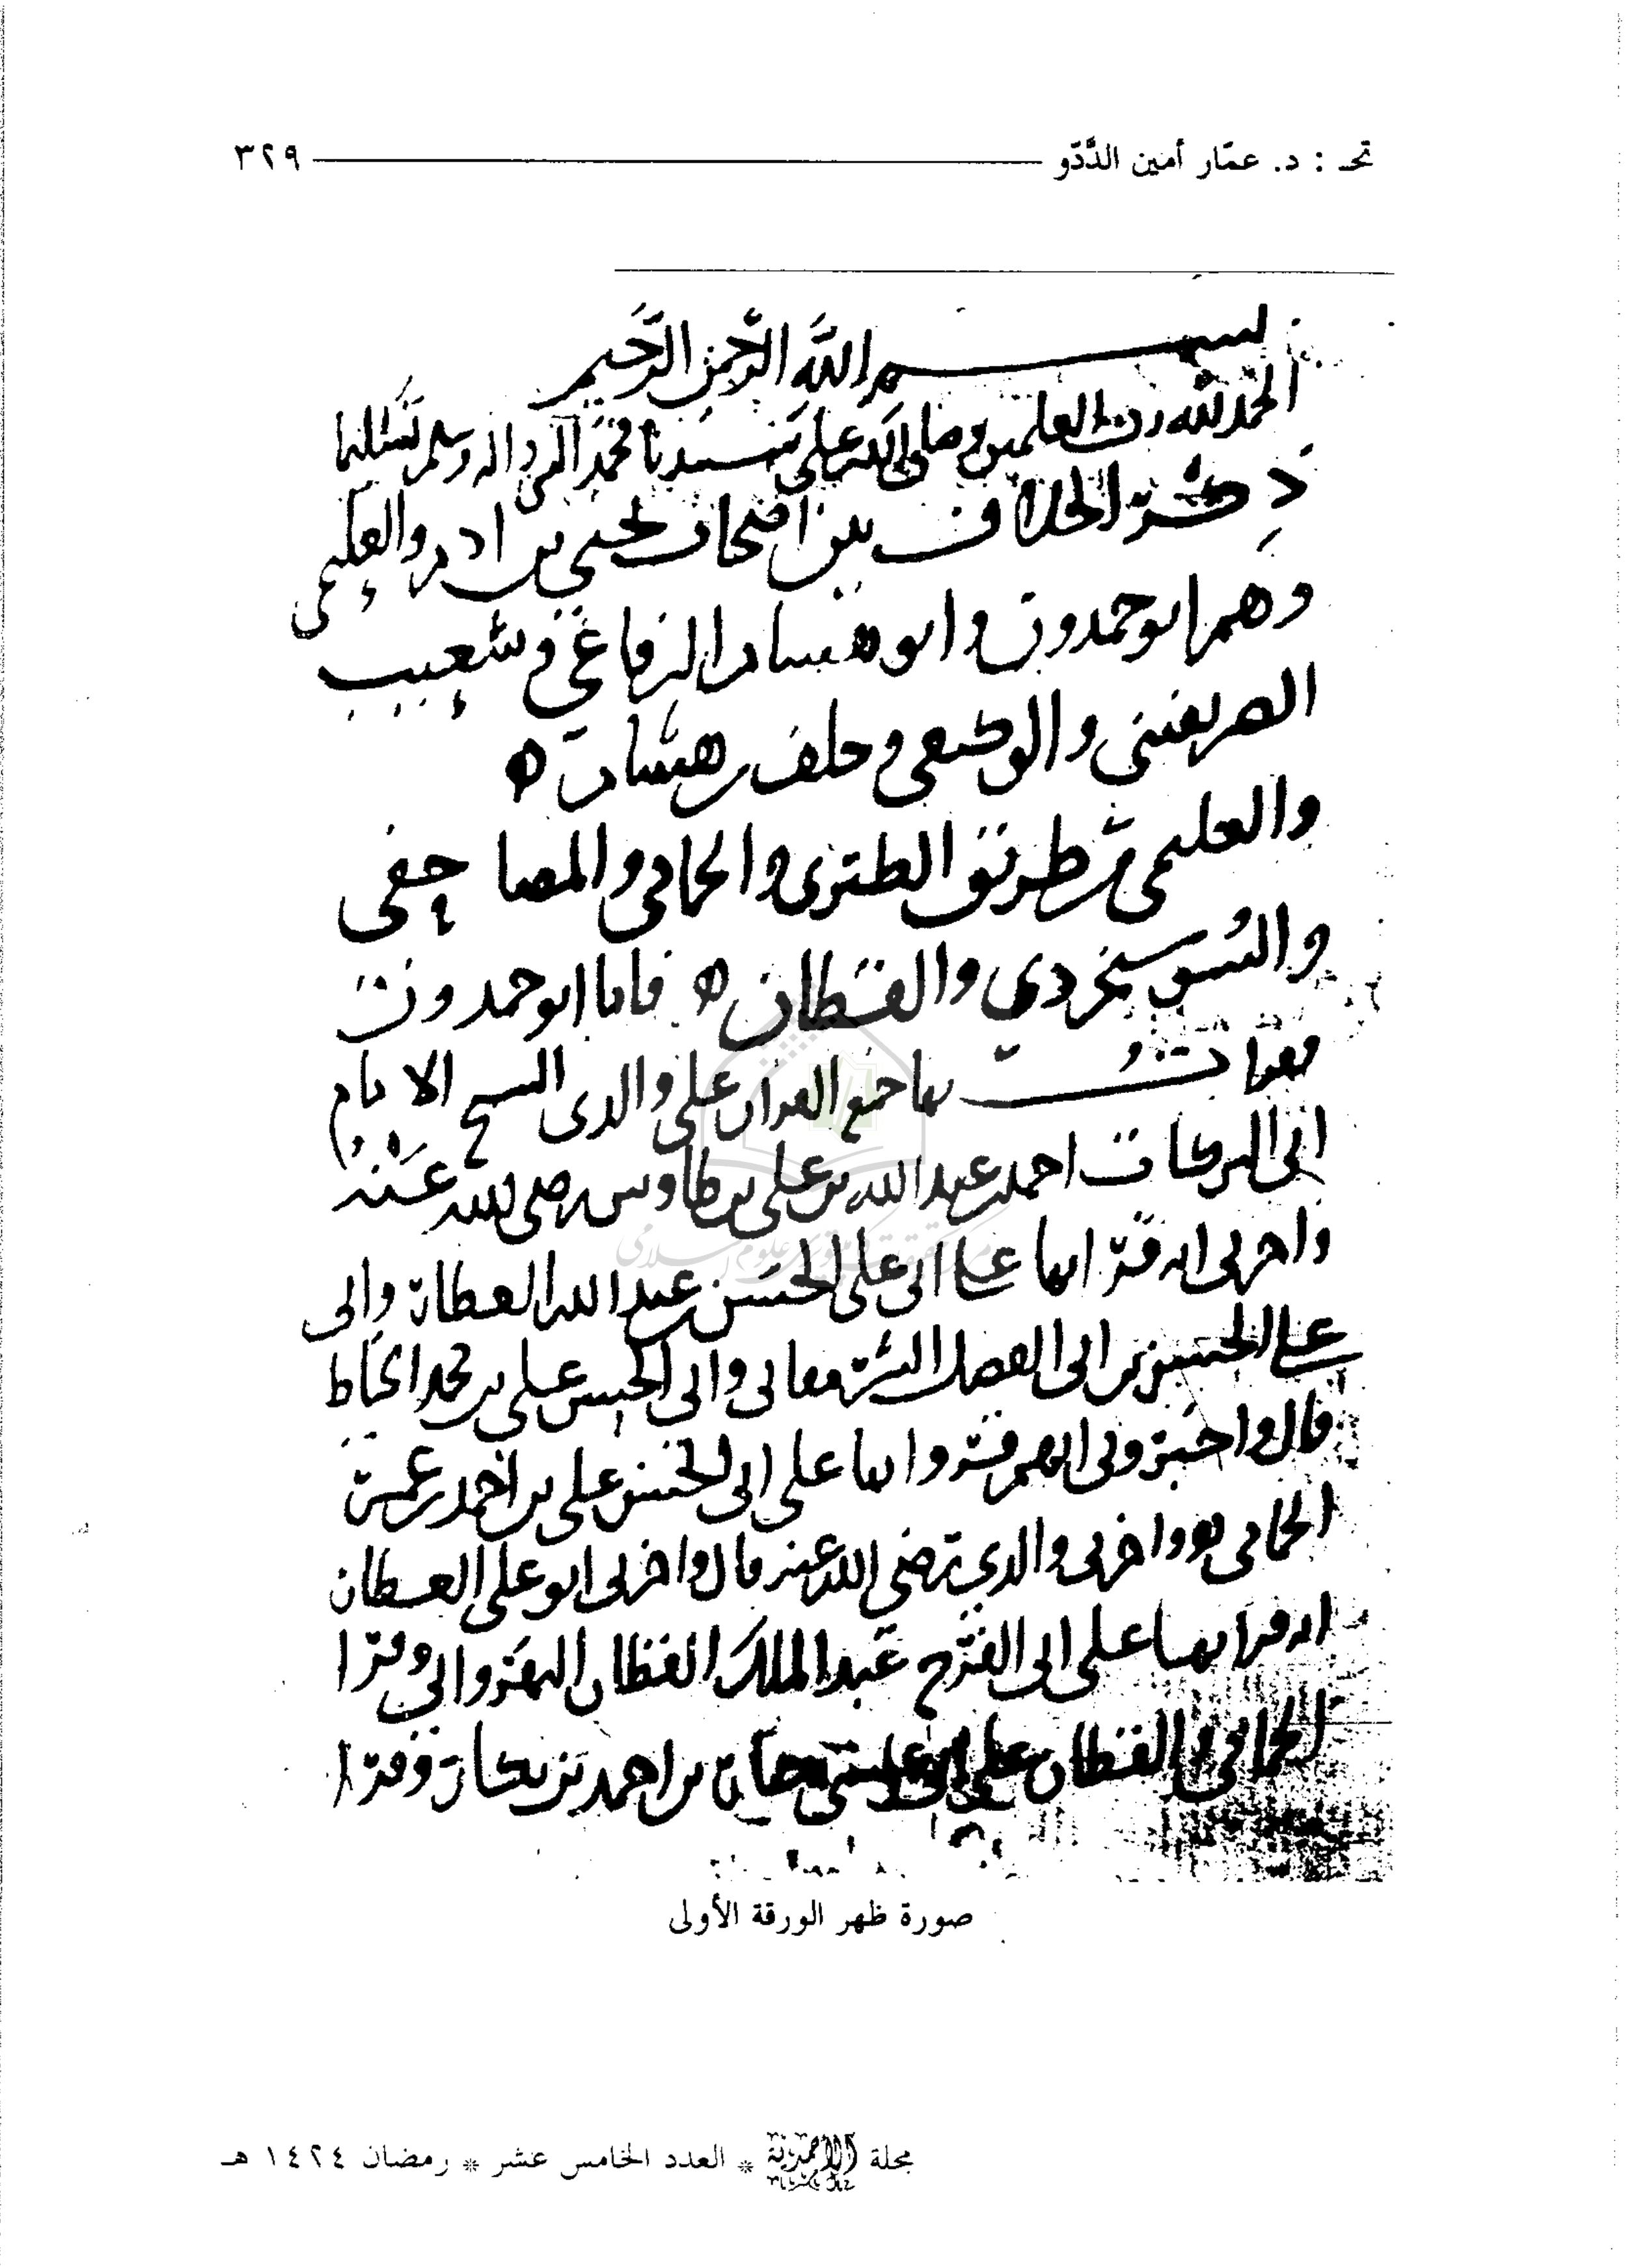 تحـ : د. عمّار أمين الدَّدّو ٣٢٩
بسم الله الرَّحمن الرَّحيم
الحمد لله رب العلمين وصلى الله على سيدنا محمد النبي واله وسلم تسليما
ذكر الخلاف بين اصحاب يحيى بن ادم والعليمي
وهم ابو حمدون وابو هشام الرفاعي وشعيب
الصريفيني والوكيعي وخلف بن هشام ه
والعليمي من طريق الطبري والحمامي والمصاحفي
والسوسنجردي والقطان ه فاما ابو حمدون
فقرات بها جميع القران على والدي الشيخ الامام
ابي البركات احمد بن عبد الله بن علي بن طاوس رضي الله عنه
واخبرني انه قرا بها على ابي علي الحسن بن عبد الله العطار والى
علي الحسن بن ابي الفضل الشرمقاني وابي الحسن علي بن محمد الخياط
قال واخبروني انهم قرءوا بها على ابي الحسن علي بن احمد بن عمر
الحمامي واخبرني والدي رضي الله عنه قال واخبرني ابو علي العطار
انه قرا بها على ابي الفرج عبد الملك القطان النهرواني وقرا
الحمامي والقطان على ابي عيسى بكار بن احمد بن بكار وقرا
صورة ظهر الورقة الأولى
مجلة الأحمدية * العدد الخامس عشر * رمضان ١٤٢٤ هـ